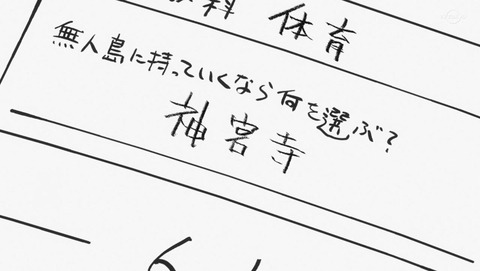 科 体育
無人島に持っていくなら何を選ぶ？
神宮寺